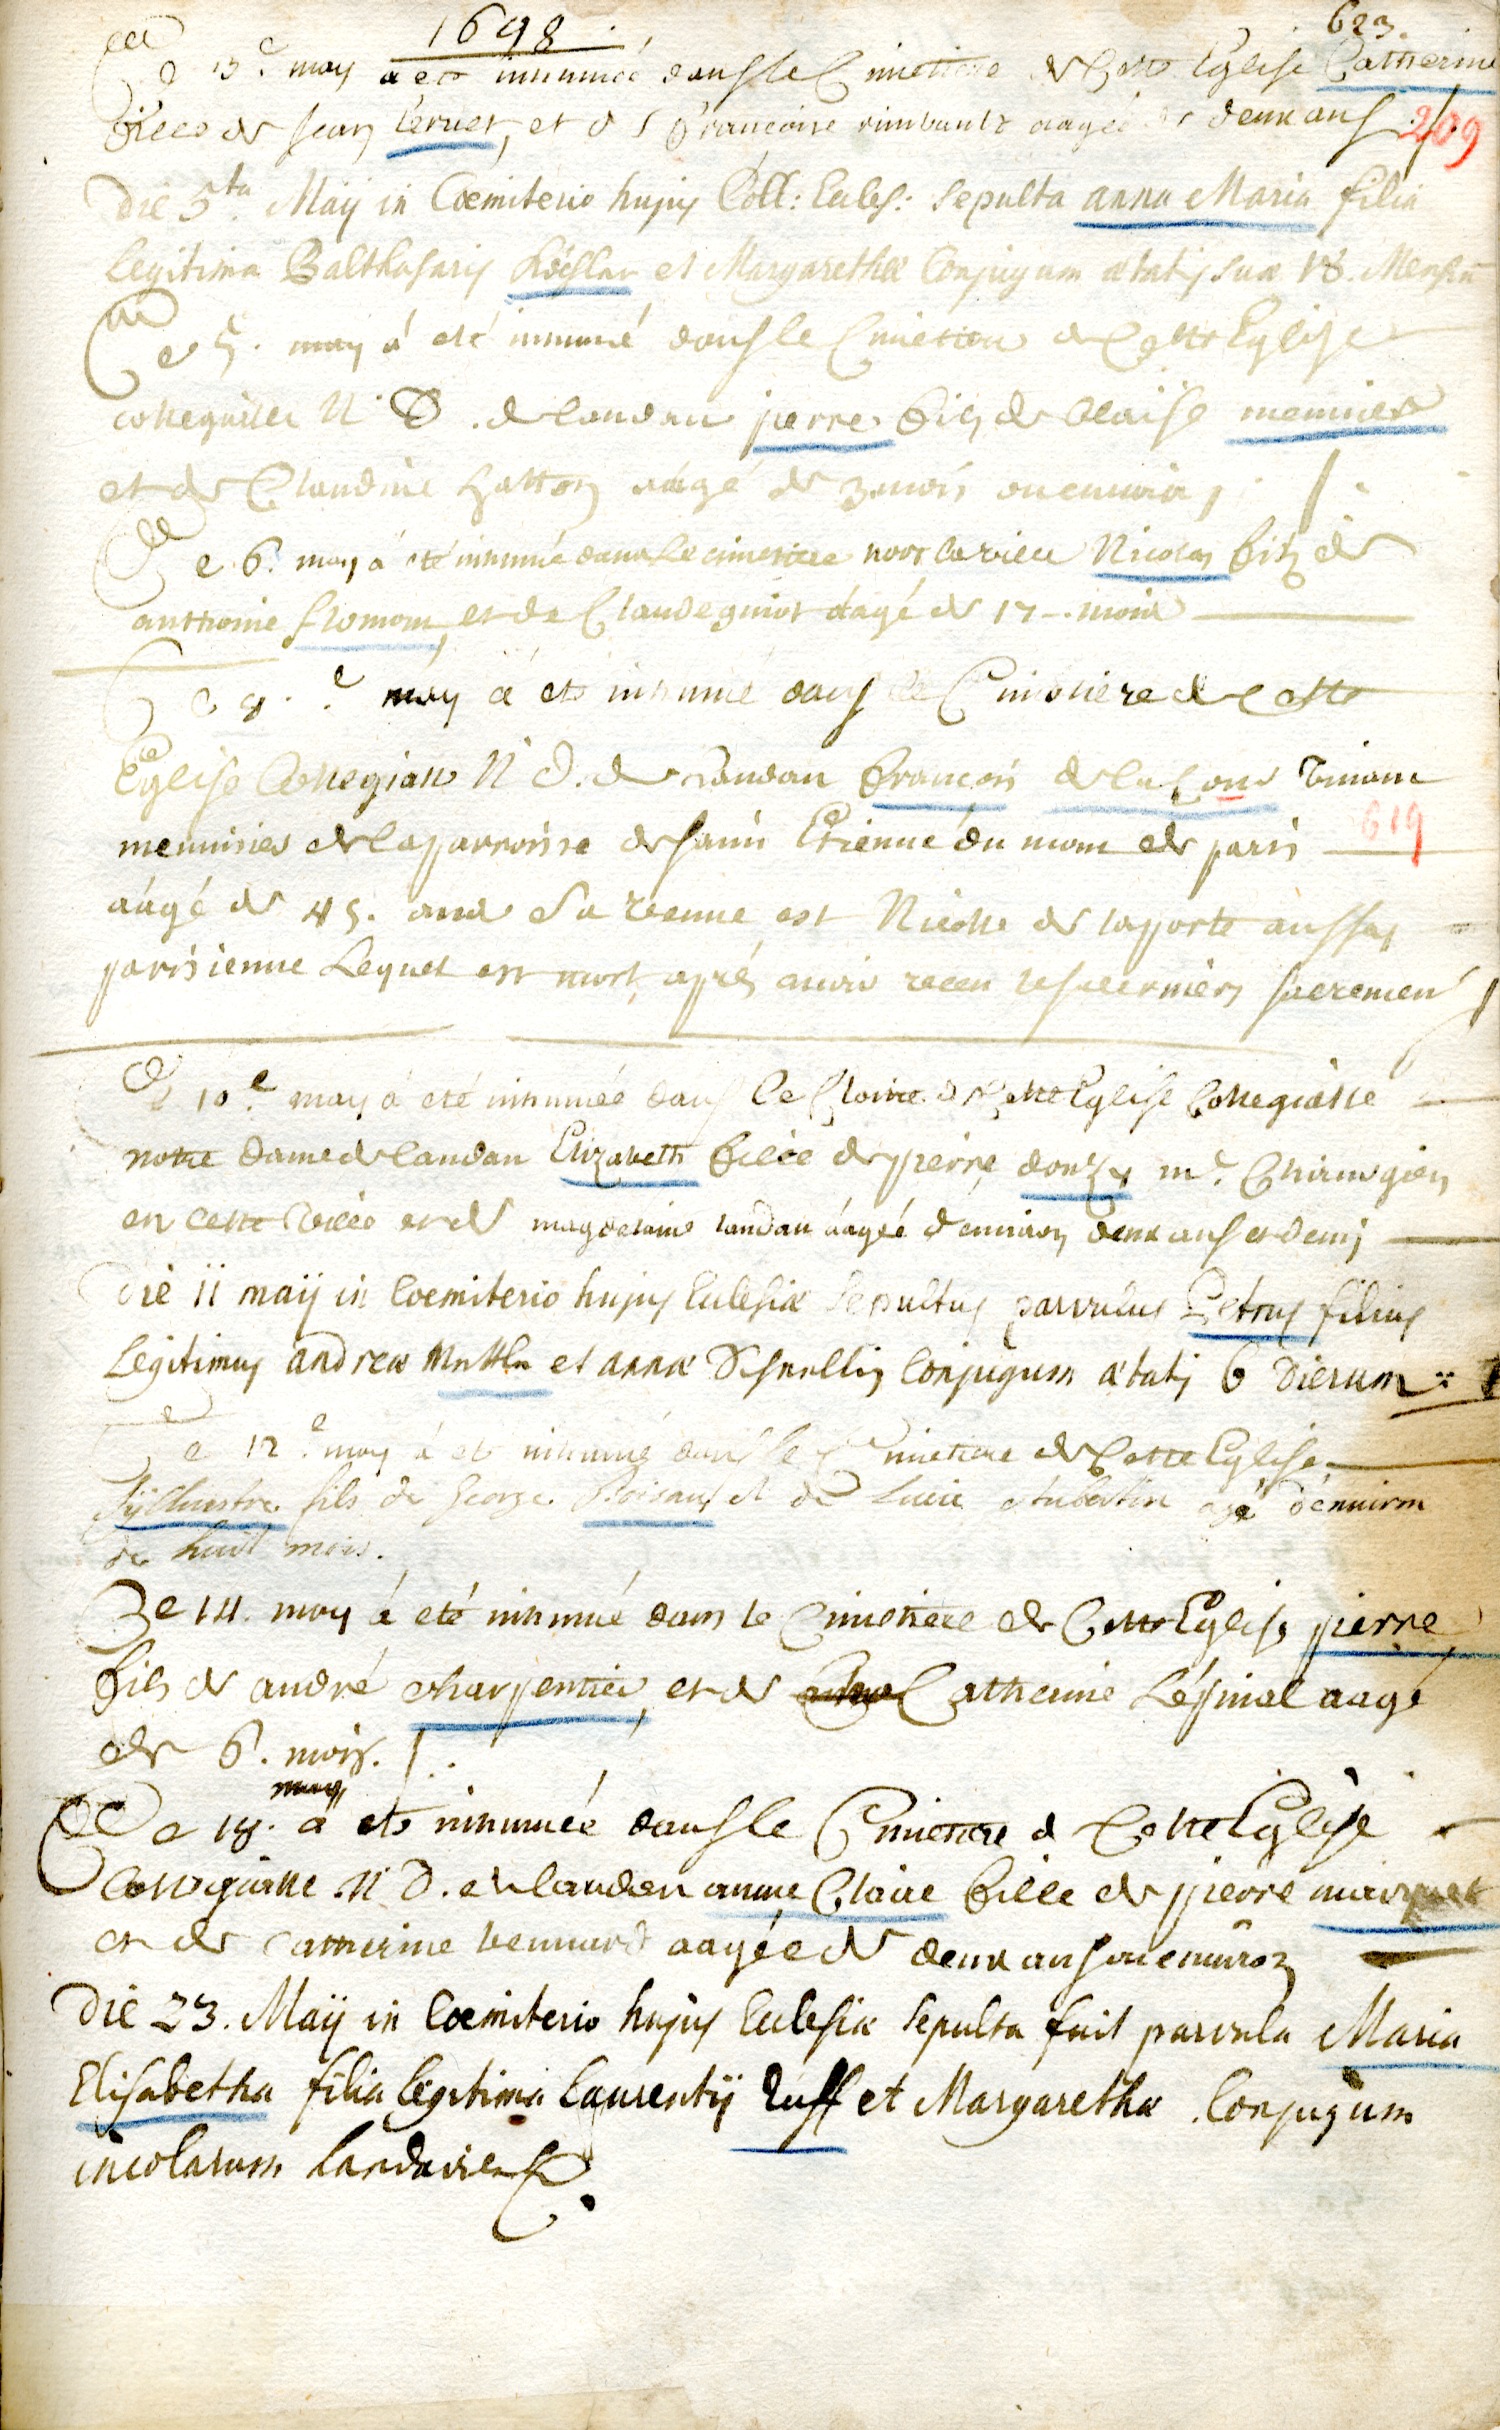 1698.
623.
Le 3.e may a eté inhumée dans le Cimetiere de Cette Eglise Catherine
fille de Jean teruet, et de françoise rimbault aagée de deux ans ./.
209
Die 5ta Maÿ in Coemiterio hujus Coll: Eccles: sepulta anna Maria filia
Legitima Balthasaris Kösslar et Margarethæ Conjugum ætatis suæ 18. Mensiu
Le 5. may á eté inhumé dans le Cimetiere de Cette Eglise
collegialle N. D. de landau pierre fils de blaise meunier
et de Claudine hatton aagé de 3 mois ou enuiron
Le 6. may á eté inhumé dans le cimetiere hors la ville Nicolas fils de
anthoine flomont, et de Claude guiot áagé de 17 mois
Le 8.e may á eté inhumé dans le Cimetiere de Cette
Eglise Collegialle N. D. de landau françois de la Cour viuant
menuisier de la parroisse de saint Etienne du mont de paris
619
aágé de 45. ans Sa veuue est Nicolle de laporte aussy
parisienne Lequel est mort aprés auoir receu les derniers sacremens
Le 10.e may á eté inhumée dans le Cloitre de Cette Eglise Collegialle
notre dame de landau Elizabeth fille de pierre donzy m.e Chirurgien
en cette ville et de magdelaine landau áagée d'enuiron deux ans et demi
Die 11 maÿ in Coemiterio hujus Ecclesiæ Sepultus parvulus Petrus filius
Legitimus andreæ Muttler et annæ Schnellin Conjugum ætatis 6 Dierum
Le 12.e may á eté inhumé dans le Cimetiere de Cette Eglise
Sÿlluestre fils de George Poisant et de Lucie Aubertin agé d'enuiron
de huit mois.
Le 14. may á eté inhumé dans le Cimetiere de Cette Eglise pierre
fils de andré charpentier, et de Catherine Lépinal aagé
de 6. mois.
Le 18. may á eté inhumée dans le Cimetiere de Cette Eglise
Collegialle N. D. de landau anne Claire fille de pierre marquet
et de Catherine bennard aagée de deux ans ou enuiron
Die 23. Maÿ in Coemiterio hujus Ecclesiæ Sepulta fuit parvula Maria
Elisabetha filia legitima Laurentÿ Ruff et Margarethæ Conjugum
incolarum Landaviens.